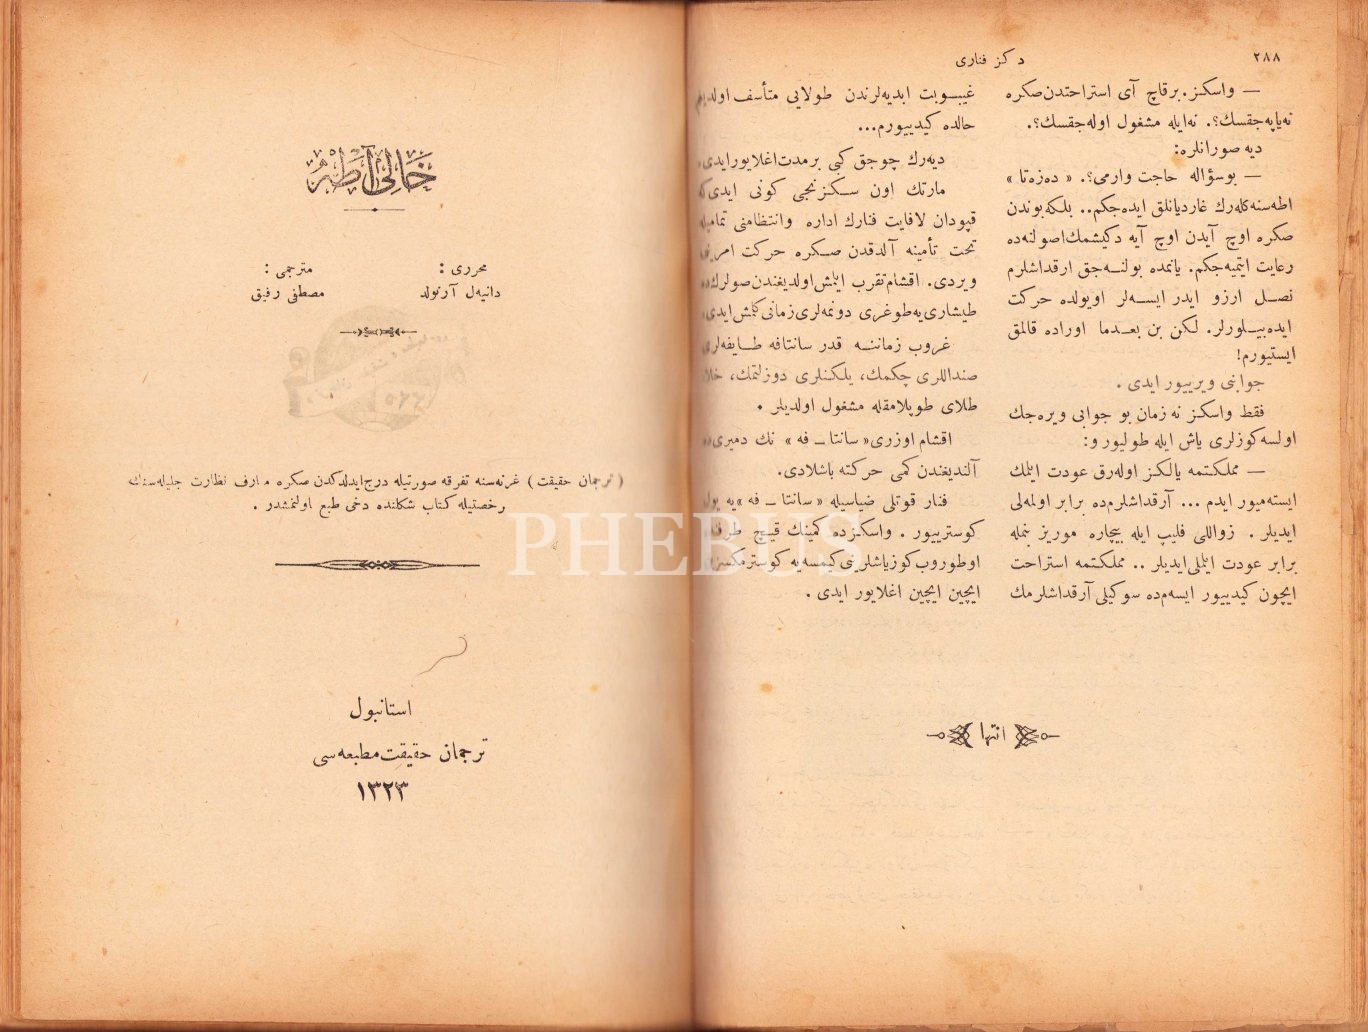 ٢٨٨
دكز فناری
— واسكز. برقاچ آی استراحتدن صكره
نه‌یاپه‌جقسك؟. نه‌ایله مشغول اوله‌جقسك؟.
دیه صورانلره:
— بوسؤاله حاجت وارمی؟. « ده‌زه‌تا »
اطه‌سنه كله‌رك غاردیانلق ایده‌جكم.. بلكه بوندن
صكره اوچ آیدن اوچ آیه دكیشمك اصولنه‌ده
رعایت ایتمیه‌جكم. یانمده بولنـه‌جق ارقداشلرم
نصـل ارزو ایدر ایسـه‌لر اویولده حركت
ایده‌بیـلورلر. لكن بن بعـدما اوراده قالمق
ایستیورم!
جوابنی ویرییور ایدی .
فقط واسكز نه زمان بو جوابی ویره‌جك
اولسه كوزلری یاش ایله طولیور و:
— مملكتمه یالكز اوله‌رق عودت ایتمك
ایسته‌میور ایدم ... آرقداشلرم‌ده برابر اولمه‌لی
ایدیلر . زواللی فلیپ ایله بیچاره موریز بنمله
برابر عودت ایتملی ایدیلر .. مملكتمه استراحت
ایچون كیدییور ایسه‌م‌ده سوكیلی آرقداشلرمك
غیبـوبت ابدیه‌لرندن طولایی متأسف اولدیغم
حالده كیدییورم...
دیه‌رك چوجق كبی برمدت اغلایور ایدی.
مارتك اون سكزنجی كونی ایدی‌كه
قپودان لافایت فنارك اداره وانتظامنی تمامیله
تحت تأمینه آلدقدن صكره حركت امرینی
ویردی. اقشام تقرب ایتمش اولدیغندن صولرك‌ده
طیشاری‌یه‌طوغری دونمه‌لری زمانی كلمش ایدی.
غروب زماننـه قدر سانتافه طـایفه‌لری
صنداللری چكمك، یلكنلری دوزلتمك، خلاط
طلای طوپلامقله مشغول اولدیلر .
اقشام اوزری« سانتا ـ فه » نك دمیری‌ده
آلندیغندن كمی حركته باشلادی.
فنار قوتلی ضیاسیله « سانتا ـ فه »یه یول
كوسترییور . واسكزده كمینك قیچ طرفنده
اوطوروب كوز یاشلرینی كیمسه‌یه كوسترمكسزین
ایچین ایچین اغلایور ایدی .
انتها
خالی آطه
محرری :
دانیه‌ل آرنولد
مترجمی :
مصطفی رفیق
( ترجمان حقیقت ) غزته‌سنه تفرقه صورتیله درج ایدلدكدن صكره معارف نظارت جلیله‌سنك
رخصتیله كتاب شكلنده دخی طبع اولنمشدر .
استانبول
ترجمان حقیقت مطبعه‌سی
١٣٢٣
PHEBUS